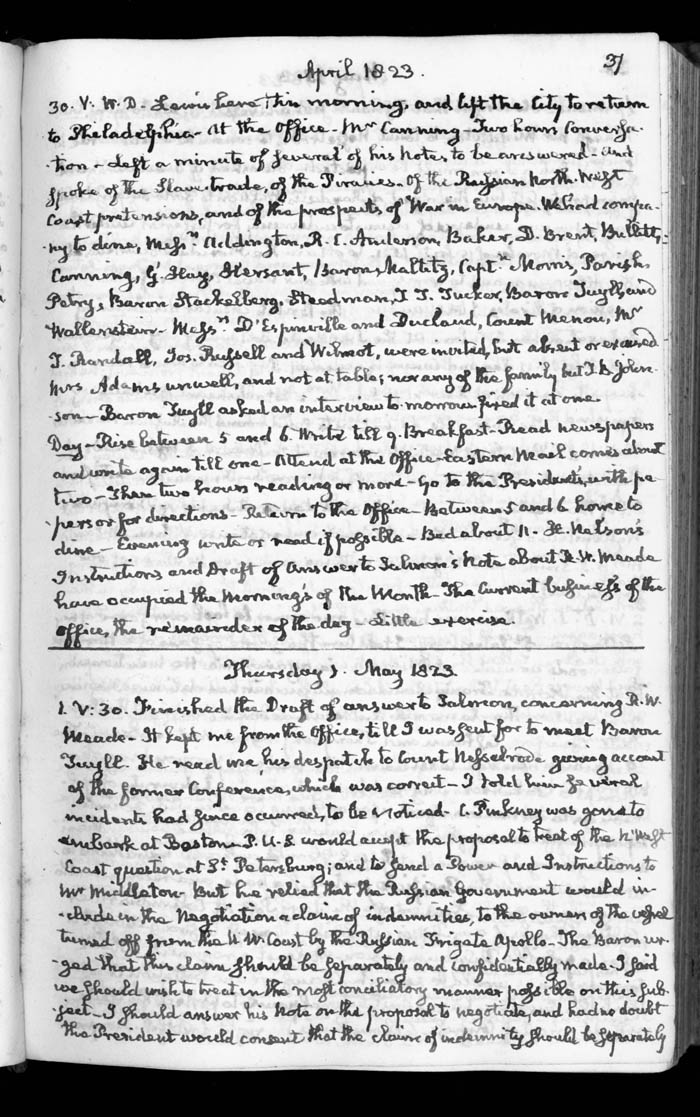 April 1823.
37
30. V: W. D. Lewis here this morning, and left the City to return
to Philadelphia. At the Office. Mr Canning. Two hours Conversa-
tion. Left a minute of several of his Notes, to be answered. and
spoke of the Slave trade, of the Piracies. Of the Russian North-West
Coast pretensions, and of the prospects of War in Europe. We had compa-
ny to dine, Messrs Addington, R. C. Anderson, Baker, D. Brent, Bullitt,
Canning, G. Hay, Hersant, Baron Maltitz, Captn Morris, Parish,
Petry, Baron Stackelberg, Steedman, T. T. Tucker, Baron Tuyll, and
Wallenstein. Messrs D'Espinville and Duclaud, Count Menou, Mr
T. Randall, Jos. Russell and Wilmot, were invited, but absent or excused
Mrs Adams unwell, and not at table; nor any of the family but T. B. John-
son. Baron Tuyll asked an interview to-morrow. fixed it at one.
Day. Rise between 5 and 6. Write till 9. Breakfast. Read newspapers
and write again till one. Attend at the Office. Eastern Mail comes about
two. Then two hours reading or more. Go to the President's, with pa-
pers or for directions. Return to the Office. Between 5 and 6 home to
dine. Evening write or read if possible. Bed about 11. H. Nelson's
Instructions and Draft of answer to Salmon's Note about R. W. Meade
have occupied the morning's of the Month. The Current business of the
office, the remainder of the day. Little exercise.
Thursday 1. May 1823.
1. V:30. Finished the Draft of answer to Salmon, concerning R. W.
Meade. It kept me from the Office, till I was sent for to meet Baron
Tuyll. He read me his despatch to Count Nesselrode giving account
of the former Conference, which was correct. I told him several
incidents had since occurred, to be noticed. C. Pinkney was gone to
embark at Boston. P. U.S. would accept the proposal to treat of the N. West
Coast question at St Petersburg; and to send a Power and Instructions to
Mr Middleton. But he relied that the Russian Government would in-
clude in the Negotiation a claim of indemnities, to the owners of the vessel
turned off from the N. W. Coast by the Russian Frigate Apollo. The Baron ur-
ged that this claim should be separately and confidentially made. I said
we should wish to treat in the most conciliatory manner possible on this sub-
ject. I should answer his Note on the proposal to negotiate, and had no doubt
the President would consent that the claim of indemnity should be separately